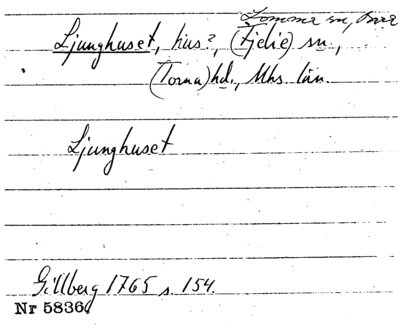 Lomma sn, Bara
Ljunghuset, hus?, (Fjelie) sn.,
(Torna) hd., Mhs. län.
Ljunghuset
Gillberg 1765 s. 154.
Nr 5836